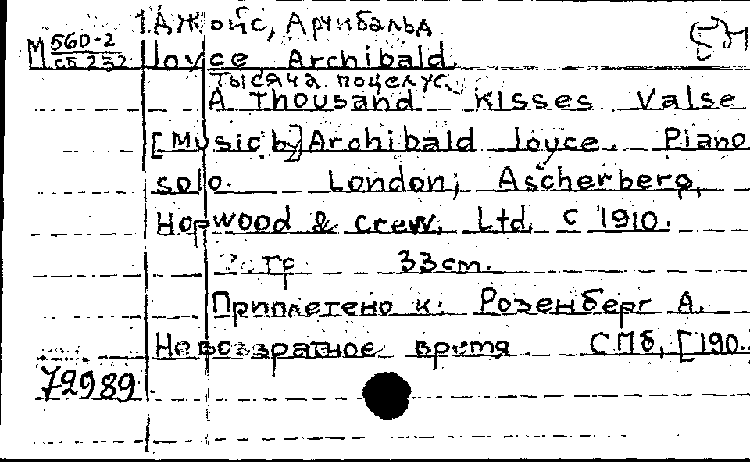 1. Джойс, Арчибальд
М 560-2
сб 232
Joyce Archibald
Тысяча поцелуе
A Thousand kisses Valse
[Music by] Archibald Joyce. Piano
solo. London; Ascherberg,
Hopwood & crew, Ltd. c 1910.
стр 33 cm.
Приплетено к: Розенберг А.
Невозвратное время СПб, [190
72989